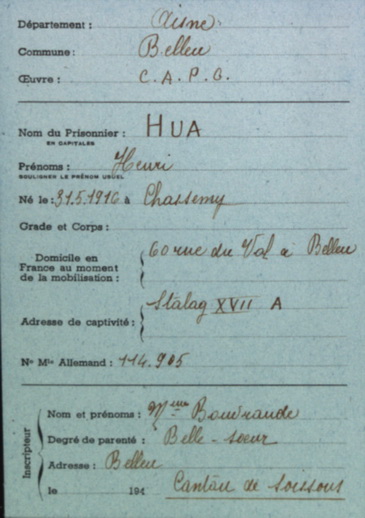 Département : Aisne
Commune : Belleu
Œuvre : C.A.P.G.
Nom du Prisonnier : HUA
EN CAPITALES
Prénoms : Henri
SOULIGNER LE PRÉNOM USUEL
Né le : 31.5.1916 à Chassemy
Grade et Corps :
Domicile en France au moment de la mobilisation : 60 rue du Val à Belleu
Adresse de captivité : Stalag XVII A
N° Mle Allemand : 114.905
Inscripteur
Nom et prénoms : Mme
Degré de parenté : Belle-soeur
Adresse : Belleu
le 194
Canton de Soissons